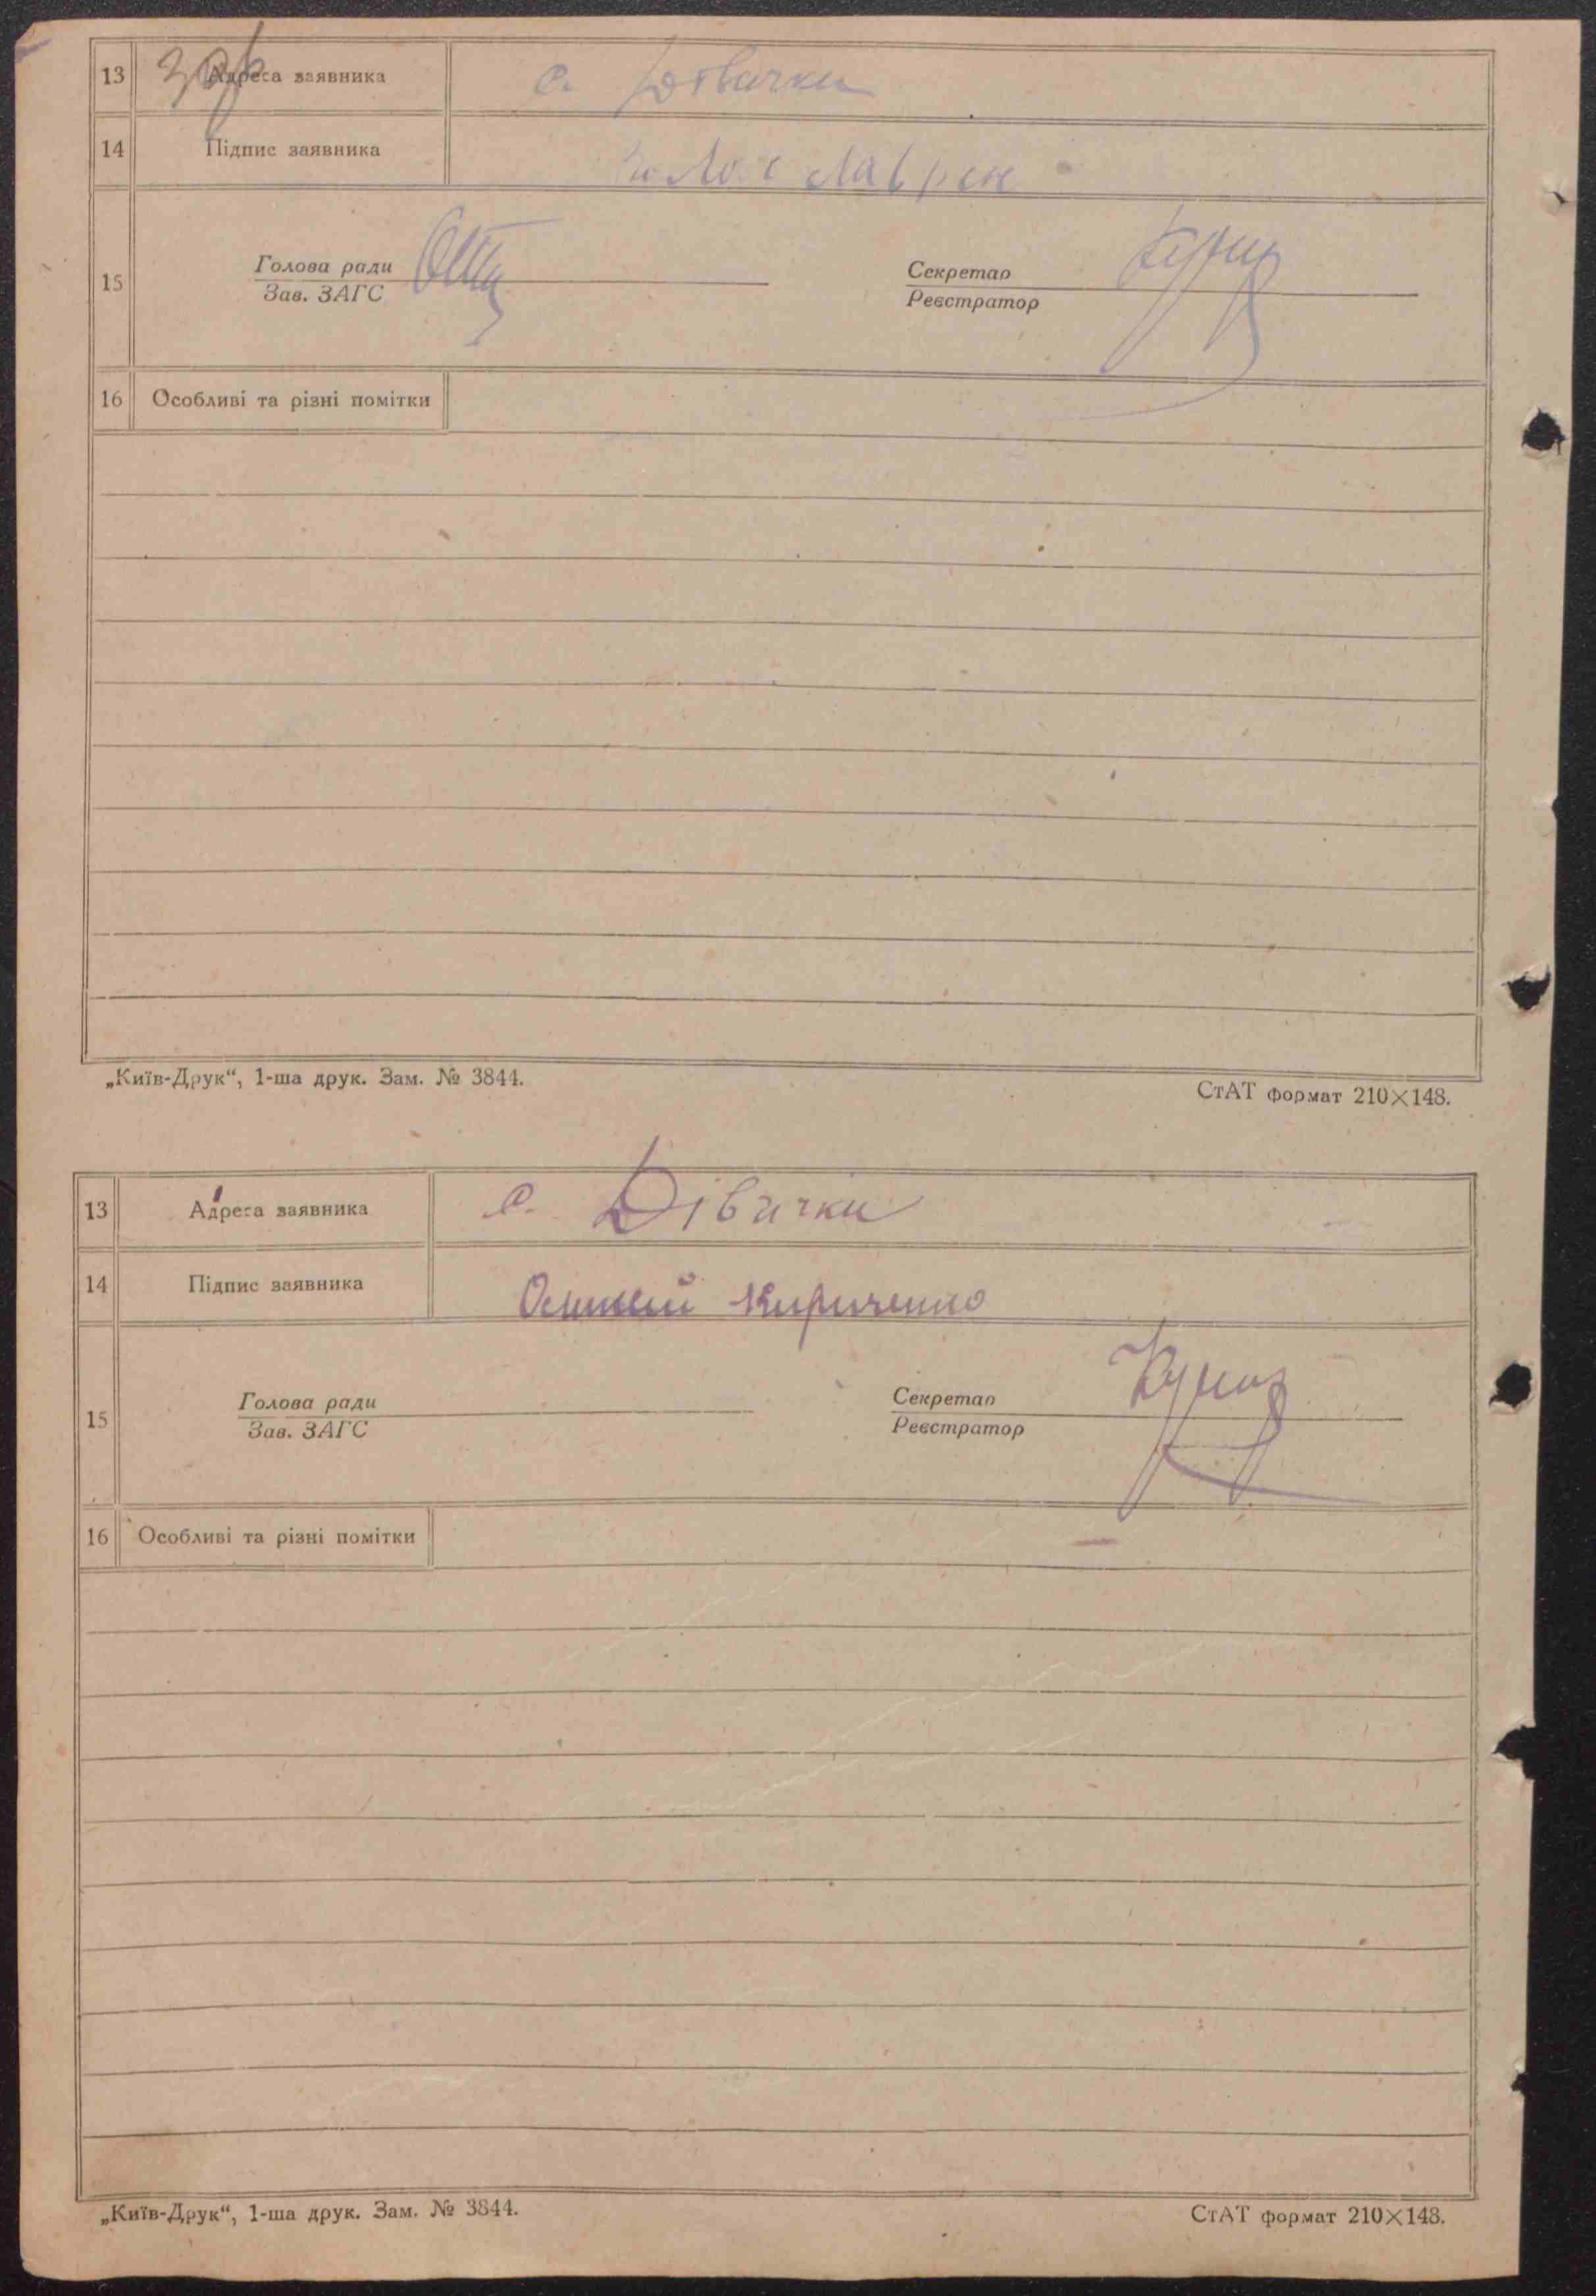 13 Адреса заявника с. Дівички
14 Підпис заявника Лаврен
15 Голова ради Секретар
Зав. ЗАГС Реєстратор
16 Особливі та різні помітки
„Київ-Друк“, 1-ша друк. Зам. № 3844. СтАТ формат 210×148.
13 Адреса заявника с. Дівички
14 Підпис заявника Кириченко
15 Голова ради Секретар
Зав. ЗАГС Реєстратор
16 Особливі та різні помітки
„Київ-Друк“, 1-ша друк. Зам. № 3844. СтАТ формат 210×148.